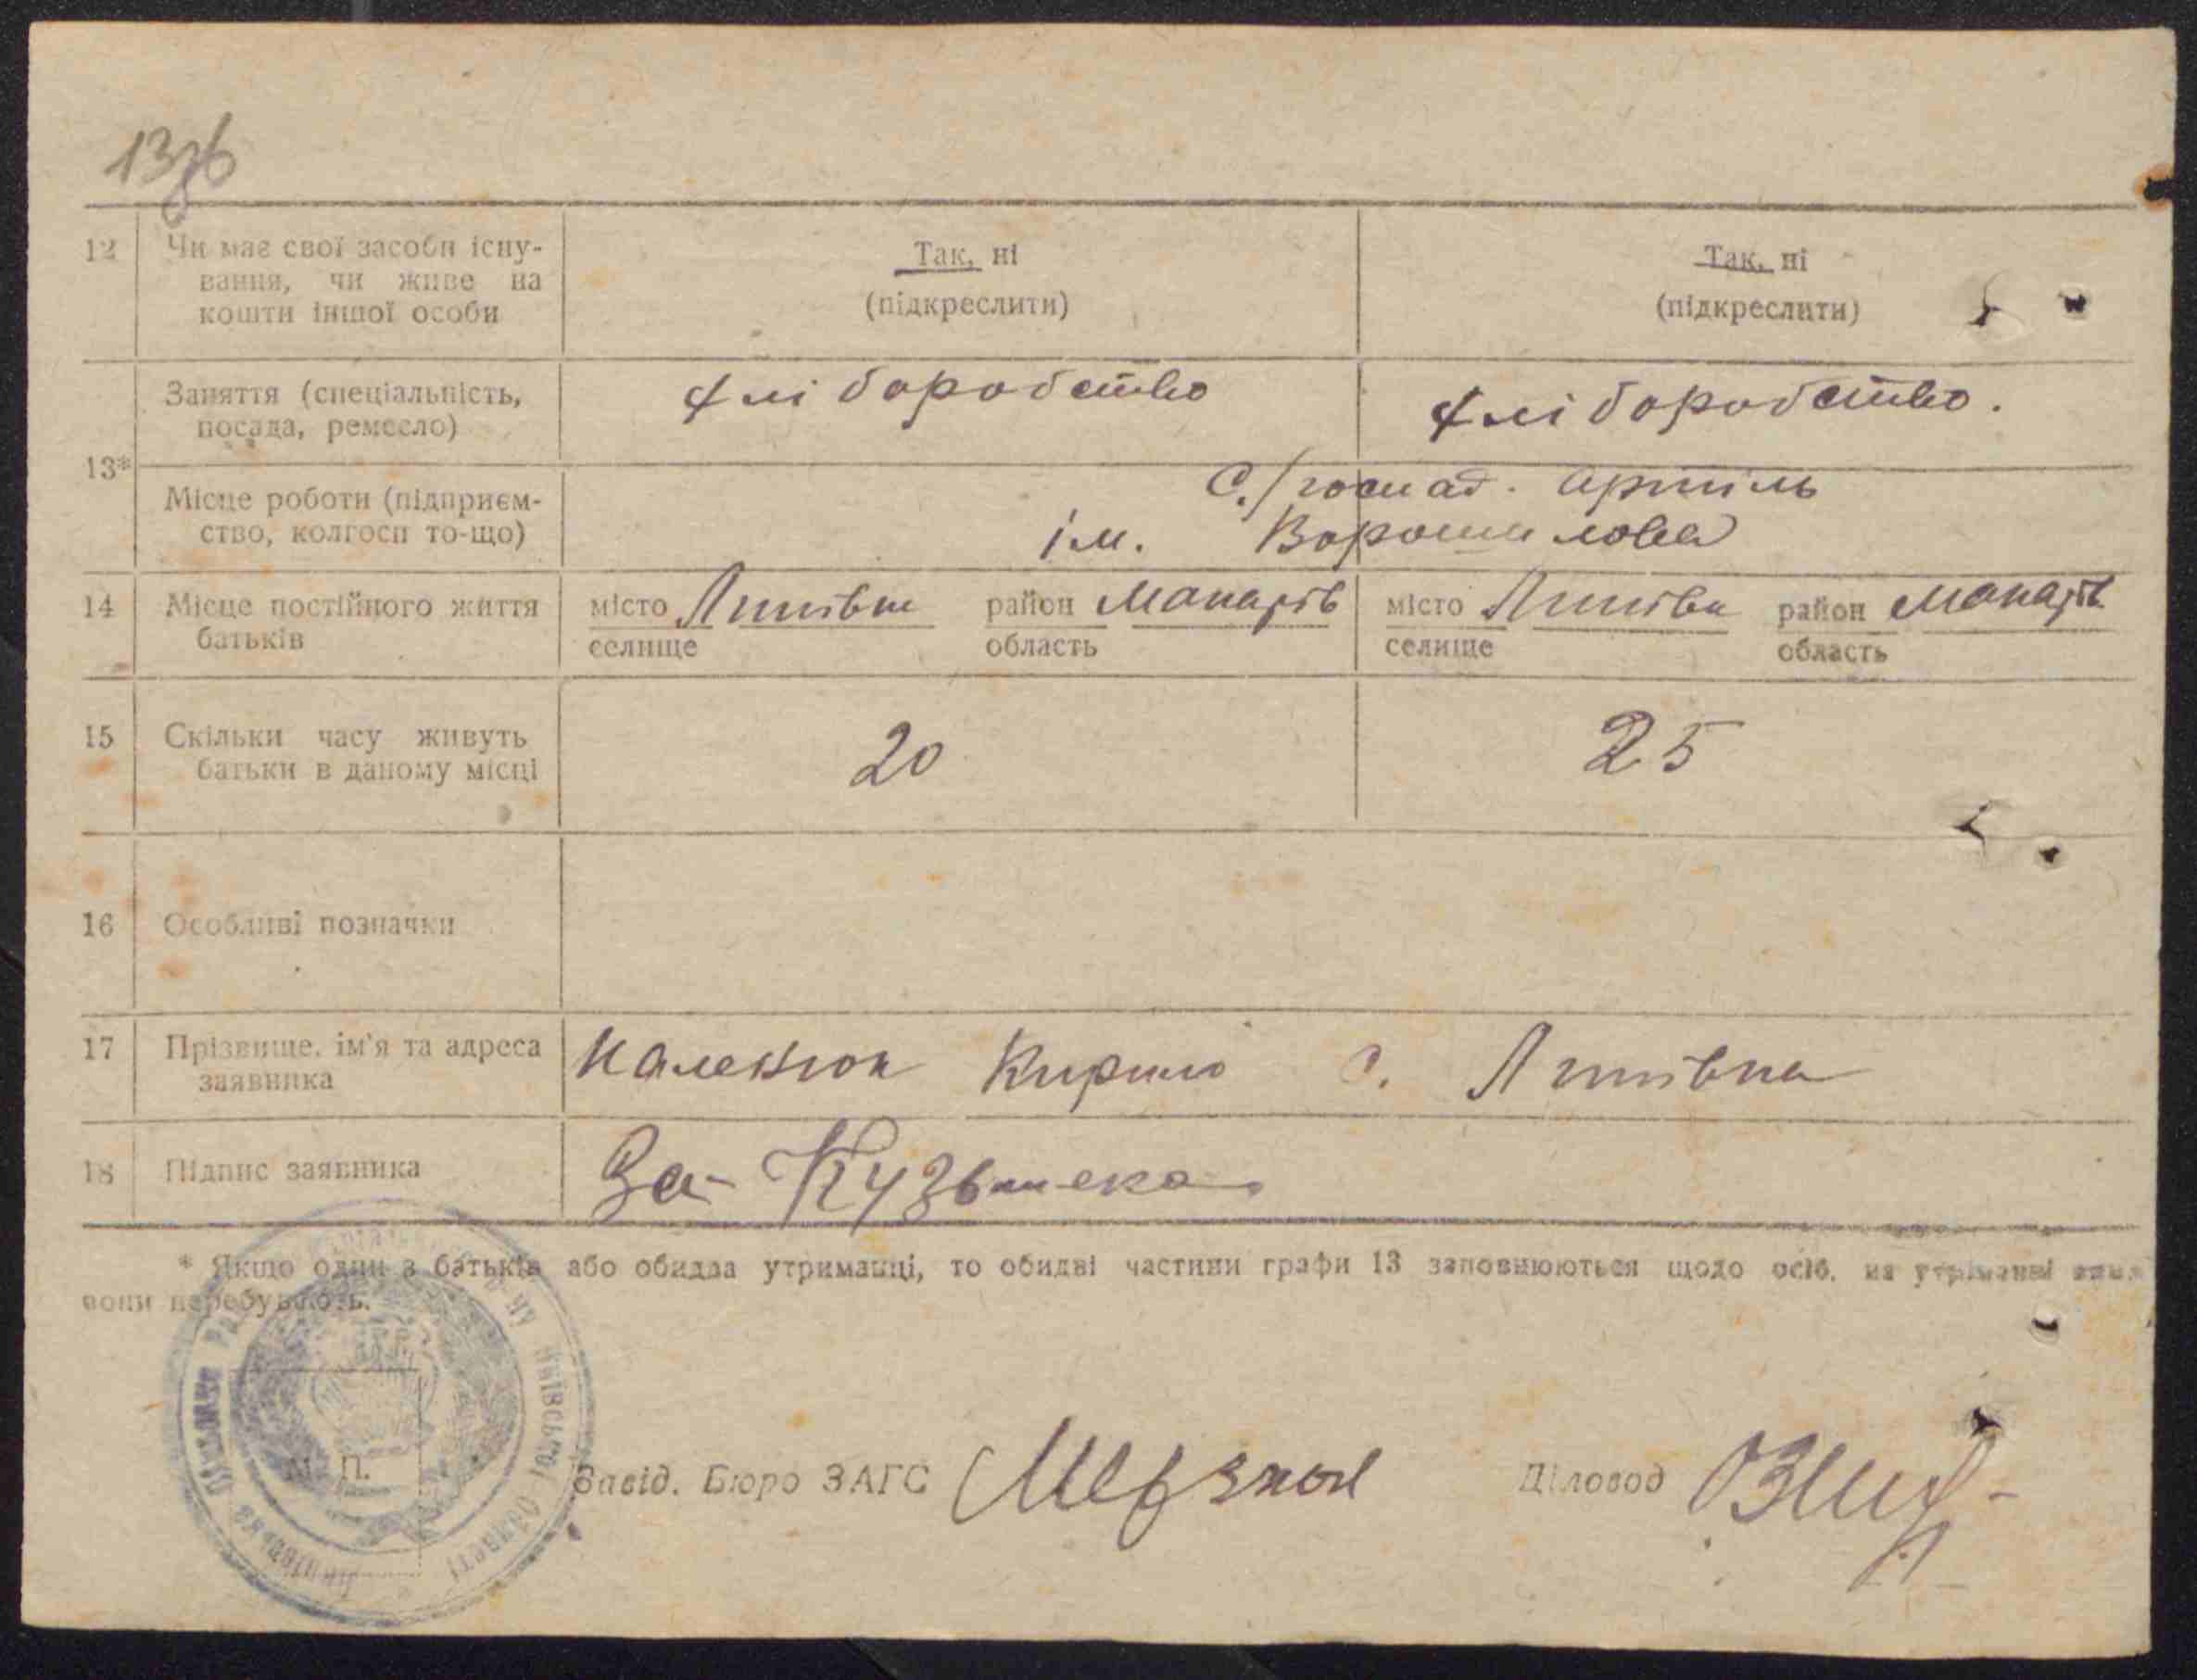 13зб
12 Чи має свої засоби існу-
вання, чи живе на
кошти іншої особи
Так, ні
(підкреслити)
Так, ні
(підкреслити)
13*
Заняття (спеціальність,
посада, ремесло)
хліборобство
хліборобство.
Місце роботи (підприєм-
ство, колгосп то-що)
С./господ. артіль
ім. Ворошилова
14 Місце постійного життя
батьків
місто Липівка район Макарів
селище область
місто Липівка район Макарів
селище область
15 Скільки часу живуть
батьки в даному місці
20
25
16 Особливі позначки
17 Прізвище, ім'я та адреса
заявника
Кирило с. Липівка
18 Підпис заявника
За
* Якщо один з батьків або обидва утриманці, то обидві частини графи 13 заповнюються щодо осіб, на утриманні яких
вони перебувають.
М. П.
Київської Області
Завід. Бюро ЗАГС
Діловод